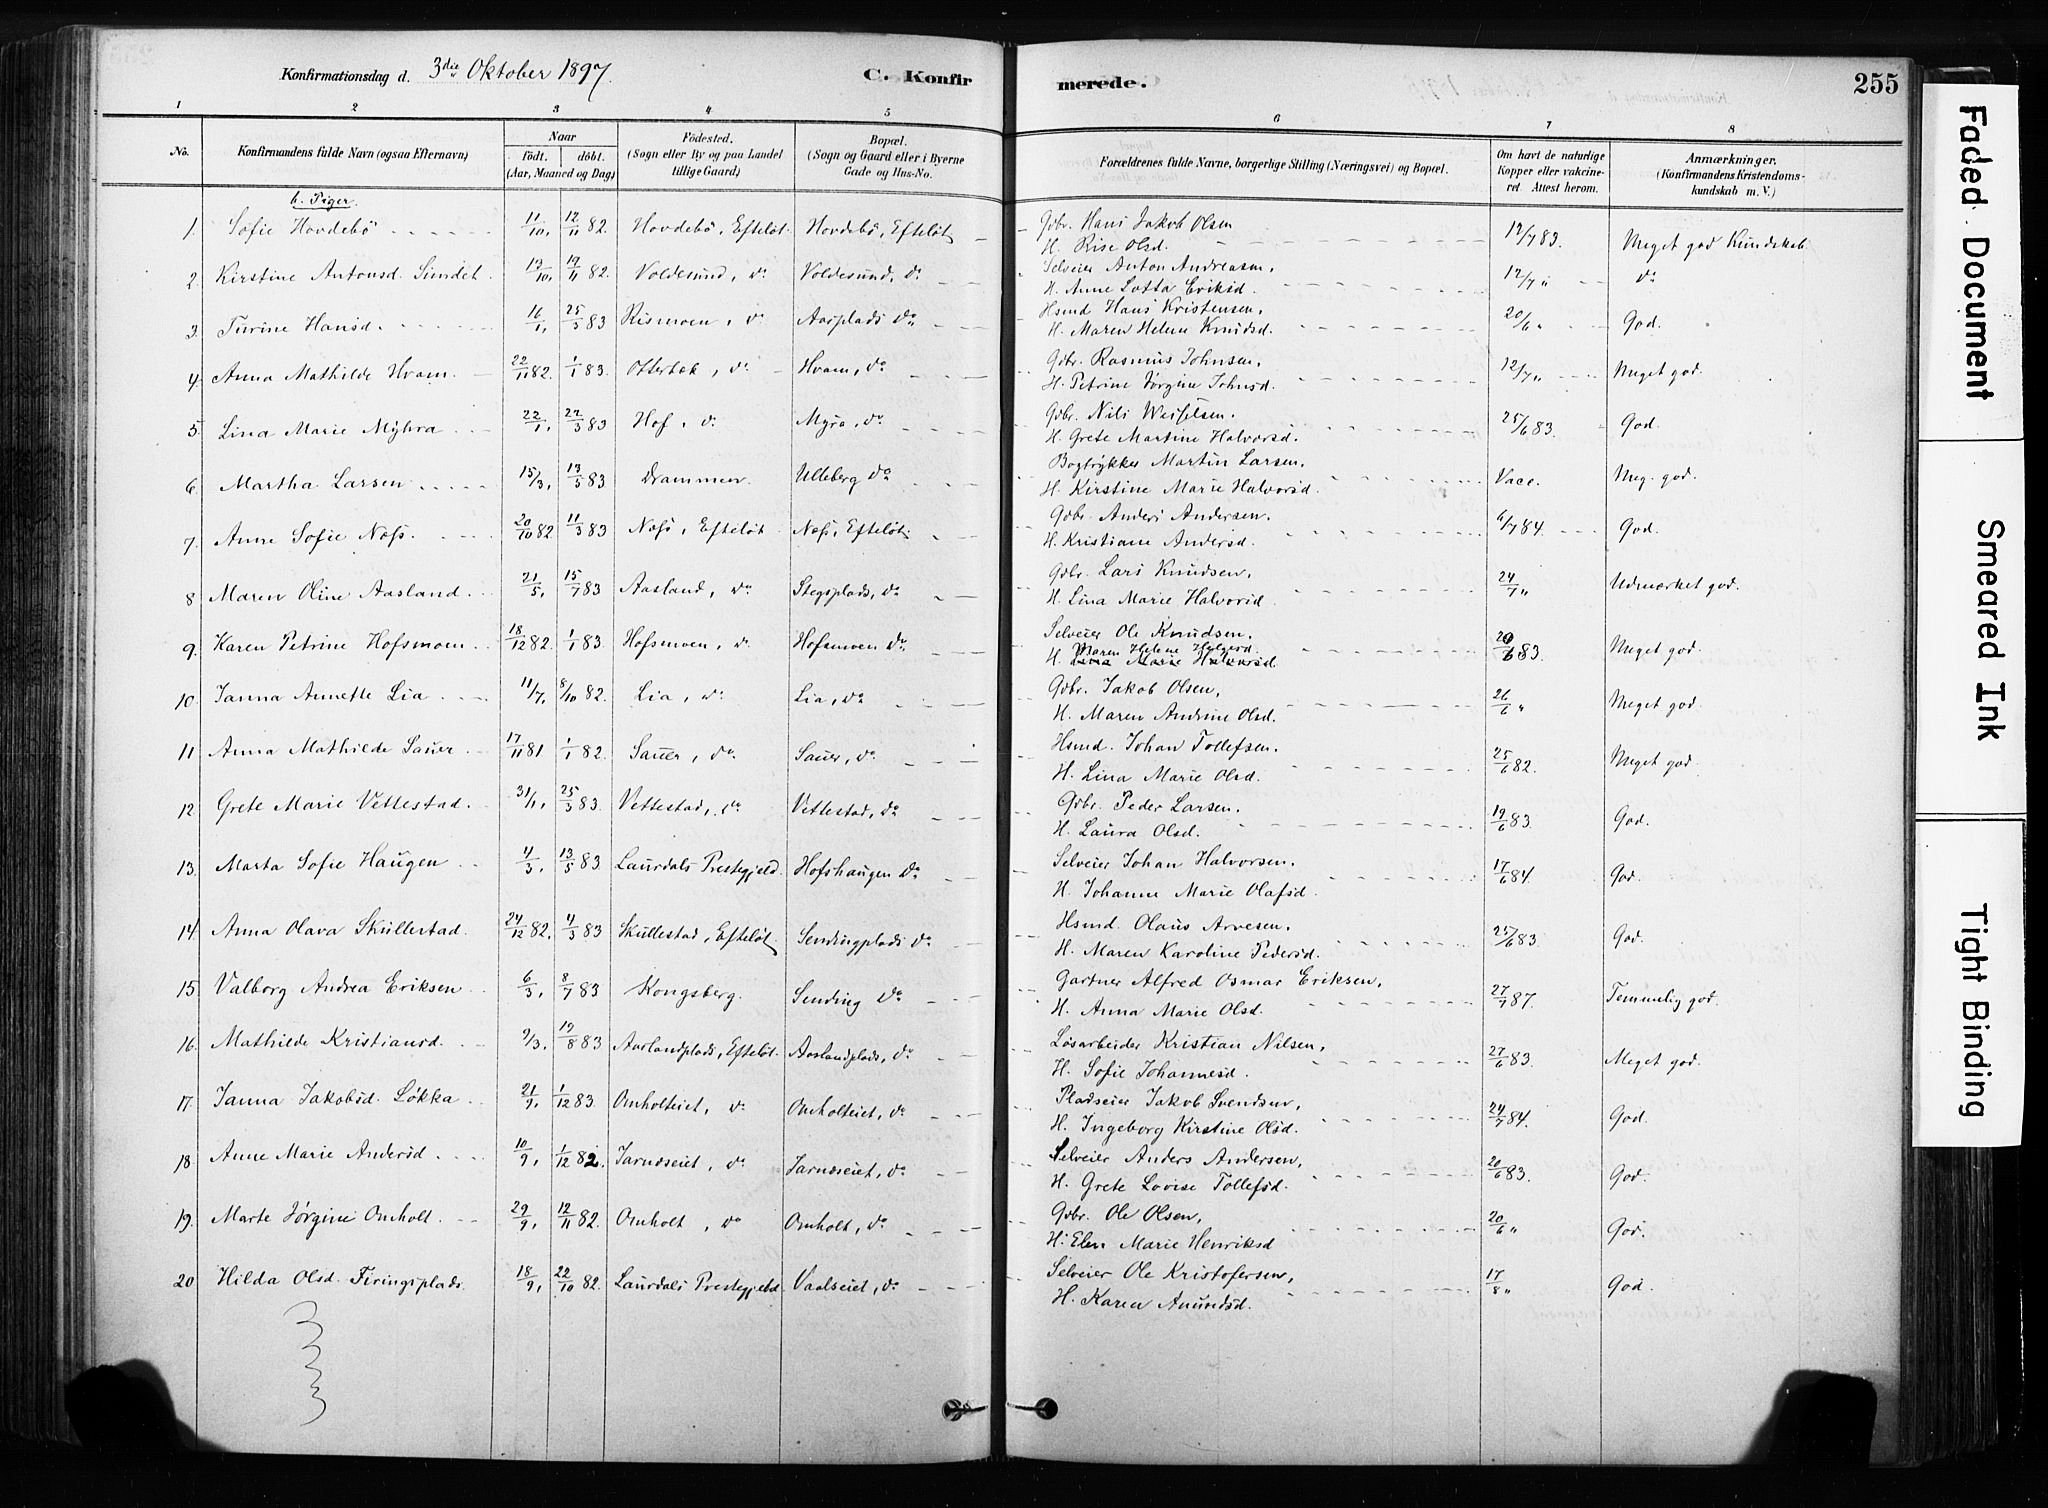 Konfirmationsdag d. 3die Oktober 1897. C. Konfirmerede. 255
1 2 3 4 5 6 7 8
No. Konfirmandens fulde Navn (ogsaa Efternavn) Naar födt. döbt. (Aar, Maaned og Dag) Födested. (Sogn eller By og paa Landet tillige Gaard) Bopæl. (Sogn og Gaard eller i Byerne Gade og Hus-No. Forældrenes fulde Navne, borgerlige Stilling (Næringsvei) og Bopæl. Om havt de naturlige Kopper eller vakcineret. Attest herom. Anmærkninger. (Konfirmandens Kristendomskundskab m. V.)
b. Piger.
1. Sofie Hovdebö 11/10, 12/11 82. Hovdebö, Efteløt. Hovdebö, Efteløt Gbr. Hans Jakob Olsen 12/7 83. Meget god Kundskab
H. Rise Olsd.
2. Kirstine Antonsd. Sundet 13/10, 19/11 82. Voldesund, do Voldesund, do Selveier Anton Andreasen, 12/7 " do
H. Anne Lotta Eriksd.
3. Turine Hansd. 16/1, 25/3 83 Rismoen, do Aasplads do Hsmd Hans Kristensen, 20/6 " God.
H. Maren Helene Knudsd.
4. Anna Mathilde Hvam. 22/11 82. 1/1 83. Otterbek, do Hvam, do Gbr. Rasmus Johnsen, 12/7 " Meget god.
H. Petrine Jørgine Johnsd.
5. Lina Marie Myhra 22/1, 27/3 83 Hof, do Myra, do Gbr. Nils Wesselsen. 25/6 83. God.
H. Grete Martine Halvorsd.
6. Martha Larsen 15/3, 13/5 83 Drammen. Ulleberg do Bogtrykker Martin Larsen, Vacc. Meg. god.
H. Kirstine Marie Halvorsd.
7. Anne Sofie Næss. 20/10 82 11/3 83 Næss, Efteløt Næss, Efteløt Gbr. Anders Andersen. 6/7 84 God.
H. Kristiane Andersd.
8 Maren Oline Aasland 21/5, 15/7 83 Aasland, do Stegsplads, do Gbr. Lars Knudsen, 24/7 " Udmærket god.
H. Lina Marie Halvorsd.
9. Karen Petrine Hofsmoen 18/12 82. 1/1 83. Hofsmoen, do Hofsmoen do Selveier Ole Knudsen. 20/6 83. Meget god.
H. Maren Helene Helgesd. Lina Marie Halvorsd
10. Janna Annette Lia 11/7, 8/10 82. Lia, do Lia, do Gbr. Jakob Olsen, 26/6 " Meget god.
H. Maren Andrine Olsd.
11 Anna Mathilde Sauer 17/11 81 1/1 82. Sauer, do Sauer, do Hsmd. Johan Tollefsen. 25/6 82. Meget god
H. Lina Marie Olsd.
12. Grete Marie Vettestad. 31/1, 25/3 83. Vettestad, do Vettestad, do Gbr. Peder Larsen. 19/6 83. God.
H. Laura Olsd.
13. Marta Sofie Haugen 4/3, 13/5 83 Laurdals Prestegjeld Hofshaugen do Selveier Johan Halvorsen. 17/6 84. God.
H. Johanne Marie Olafsd.
14. Anna Olava Skullestad. 24/12 82. 4/3 83 Skullestad, Efteløt Sendingplads do Hsmd. Olaus Arvesen. 25/6 83. God.
H. Maren Karoline Pedersd.
15. Valborg Andrea Eriksen 6/3, 8/7 83 Kongsberg. Sending do Gartner Alfred Osmar Eriksen, 27/7 87. Temmelig god.
H. Anna Marie Olsd.
16. Mathilde Kristiansd. 9/3, 19/8 83 Aaslandplads, Efteløt. Aaslandplads, do Løsarbeider Kristian Nilsen, 27/6 83. Meget god.
H. Sofie Johannesd.
17. Janna Jakobsd. Løkka 21/9, 1/12 83. Omholteiet, do Omholteiet, do Pladseier Jakob Svendsen, 24/7 84. God.
H. Ingeborg Kirstine Olsd.
18. Anne Marie Andersd. 10/9, 1/12 82. Jarnæseiet, do Jarnæseiet, do Selveier Anders Andersen, 20/6 83. God.
H. Grete Lovise Tollefsd.
19. Marte Jørgine Omholt. 29/9, 12/11 82. Omholt, do Omholt, do Gbr. Ole Olsen, 20/6 " God.
H. Elen Marie Henriksd
20 Hilda Olsd. Firingsplads. 18/9, 22/10 82. Laurdals Prestegjeld Vaalseiet, do Selveier Ole Kristofersen, 17/8 " God
H. Karen Anundsd.
Faded Document
Smeared Ink
Tight Binding